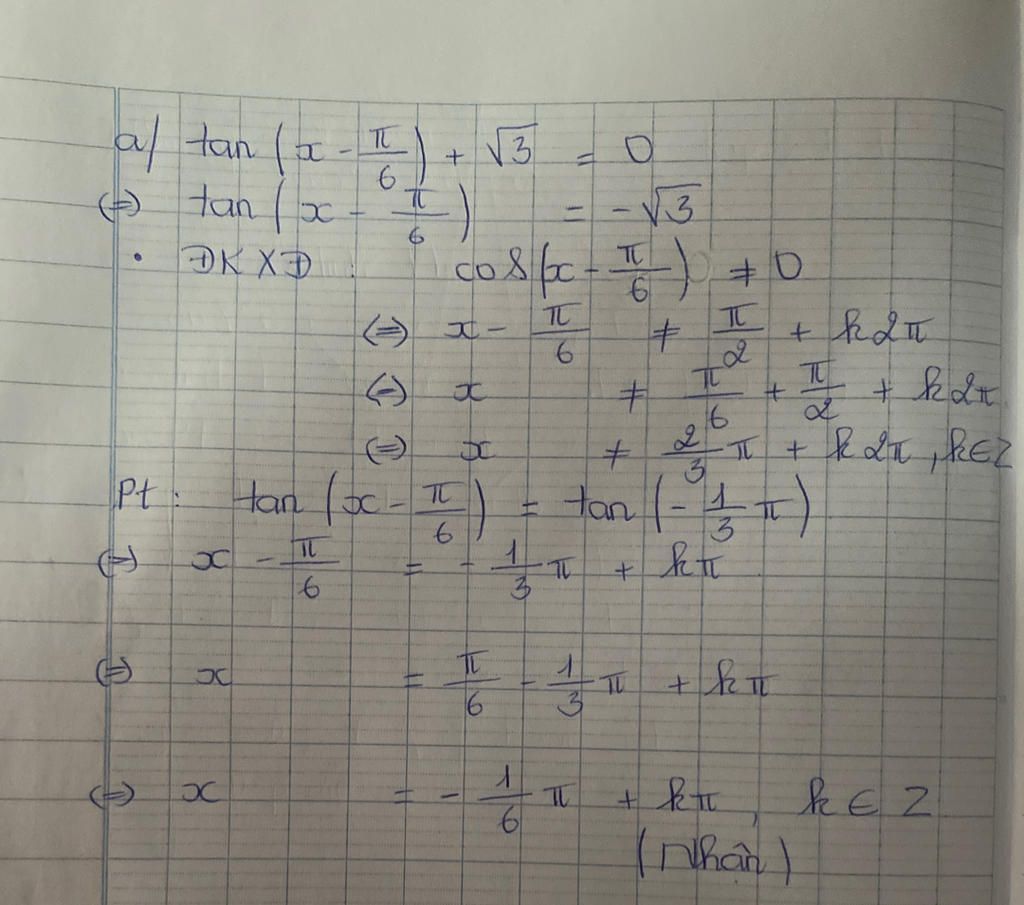 a/ tan(x - π/6) + √3 = 0
(=) tan(x - π/6) = -√3
• ĐKXĐ: cos(x - π/6) ≠ 0
(=) x - π/6 ≠ π/2 + k2π
(=) x ≠ π/6 + π/2 + k2π
(=) x ≠ 2/3 π + k2π, k∈Z
Pt: tan(x - π/6) = tan(-1/3 π)
(=) x - π/6 = -1/3 π + kπ
(=) x = π/6 - 1/3 π + kπ
(=) x = -1/6 π + kπ, k ∈ Z
(Nhân)